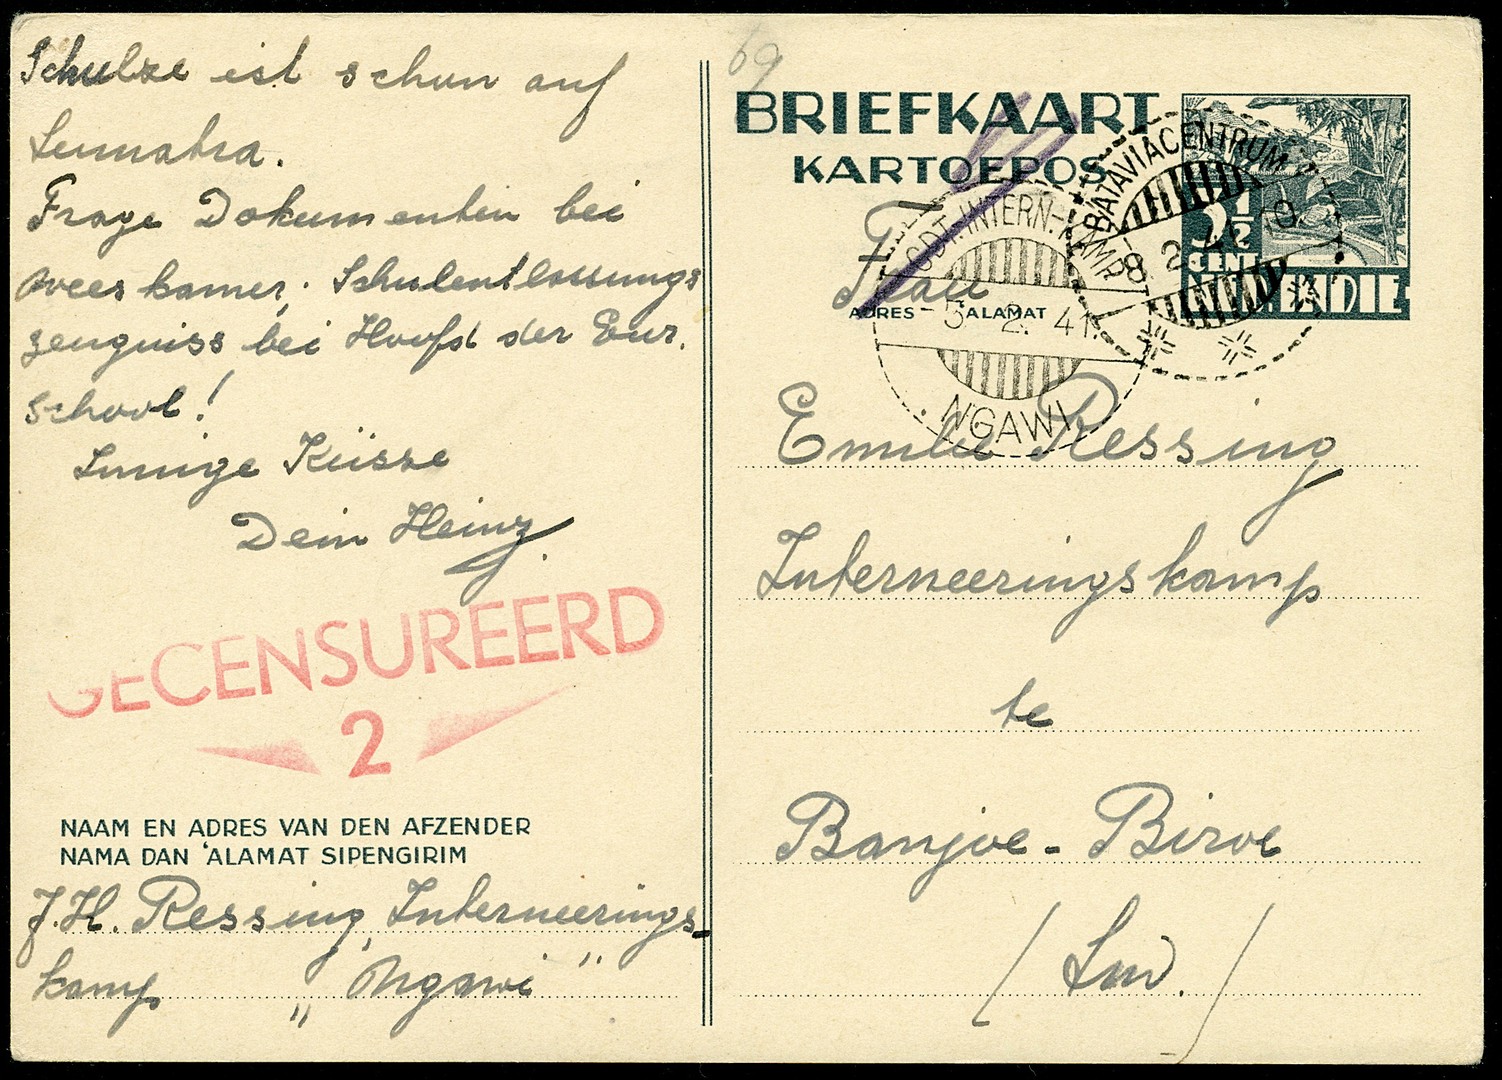 Schulze ist schon auf
Sumatra.
Frage Dokumenten bei
weeskamer; Schulentlassungs
zeugniss bei Hoofd der Eur.
school!
Innige Küsse
Dein Heinz
GECENSUREERD
2
NAAM EN ADRES VAN DEN AFZENDER
NAMA DAN 'ALAMAT SIPENGIRIM
J. H. Ressing, Interneerings-
kamp „Ngawi"
69
BRIEFKAART
KARTOEPOS
3½
CENT
NED. INDIE
BATAVIACENTRUM
8. 2. 41. 10
INTERN. KAMP
5. 2. 41.
NGAWI
Frau
ADRES ALAMAT
Emilie Ressing
Interneeringskamp
te
Banjoe-Biroe